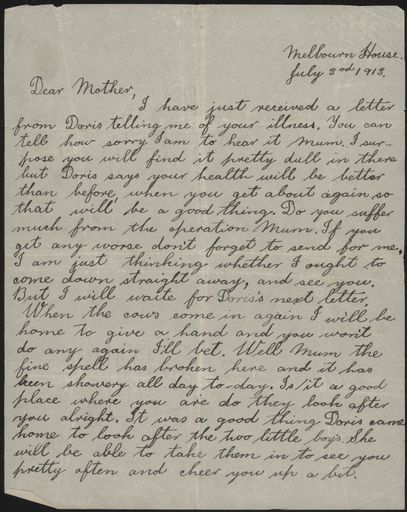 Melbourn House.
July 3rd 1913.
Dear Mother,
I have just received a letter
from Doris telling me of your illness. You can
tell how sorry I am to hear it Mum. I sur-
pose you will find it pretty dull in there
but Doris says your health will be better
than before, when you get about again so
that will be a good thing. Do you suffer
much from the operation Mum. If you
get any worse don't forget to send for me,
I am just thinking whether I ought to
come down straight away, and see you.
But I will waite for Doris's next letter.
When the cows come in again I will be
home to give a hand and you won't
do any again I'll bet. Well Mum the
fine spell has broken here and it has
been showery all day to-day. Is it a good
place where you are do they look after
you alright. It was a good thing Doris came
home to look after the two little boys. She
will be able to take them in to see you
pretty often and cheer you up a bit.